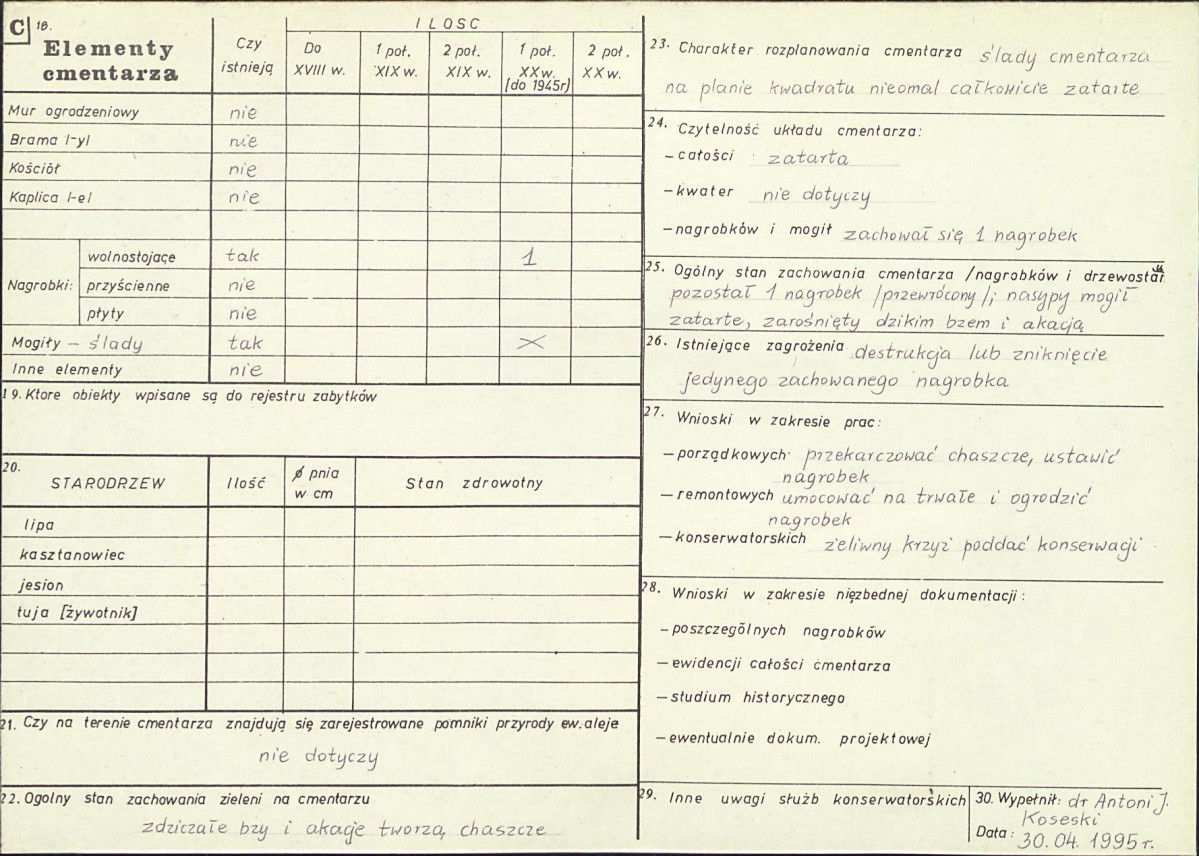 C 18.
Elementy cmentarza
Czy istnieją
ILOSC
Do XVIII w.
1 poł. XIX w.
2 poł. XIX w.
1 poł. XX w. (do 1945r)
2 poł. XX w.
Mur ogrodzeniowy nie
Brama /-y/ nie
Kościół nie
Kaplica /-e/ nie
Nagrobki: wolnostojące tak 1
przyścienne nie
płyty nie
Mogiły – ślady tak ×
Inne elementy nie
19. Ktore obiekty wpisane są do rejestru zabytków
20. STARODRZEW Ilość ø pnia w cm Stan zdrowotny
lipa
kasztanowiec
jesion
tuja [żywotnik]
21. Czy na terenie cmentarza znajdują się zarejestrowane pomniki przyrody ew. aleje
nie dotyczy
22. Ogolny stan zachowania zieleni na cmentarzu
zdziczałe bzy i akacje tworzą chaszcze
23. Charakter rozplanowania cmentarza ślady cmentarza
na planie kwadratu nieomal całkowicie zatarte
24. Czytelność układu cmentarza:
– całości zatarta
– kwater nie dotyczy
– nagrobków i mogił zachował się 1 nagrobek
25. Ogólny stan zachowania cmentarza /nagrobków i drzewostanu
pozostał 1 nagrobek /przewrócony/; nasypy mogił
zatarte, zarośnięty dzikim bzem i akacją
26. Istniejące zagrożenia destrukcja lub zniknięcie
jedynego zachowanego nagrobka
27. Wnioski w zakresie prac:
– porządkowych przekarczować chaszcze, ustawić
nagrobek
– remontowych umocować na trwałe i ogrodzić
nagrobek
– konserwatorskich żeliwny krzyż poddać konserwacji
28. Wnioski w zakresie nięzbednej dokumentacji:
– poszczególnych nagrobków
– ewidencji całości cmentarza
– studium historycznego
– ewentualnie dokum. projektowej
29. Inne uwagi służb konserwatorskich
30. Wypełnił: dr Antoni J.
Koseski
Data: 30.04.1995 r.